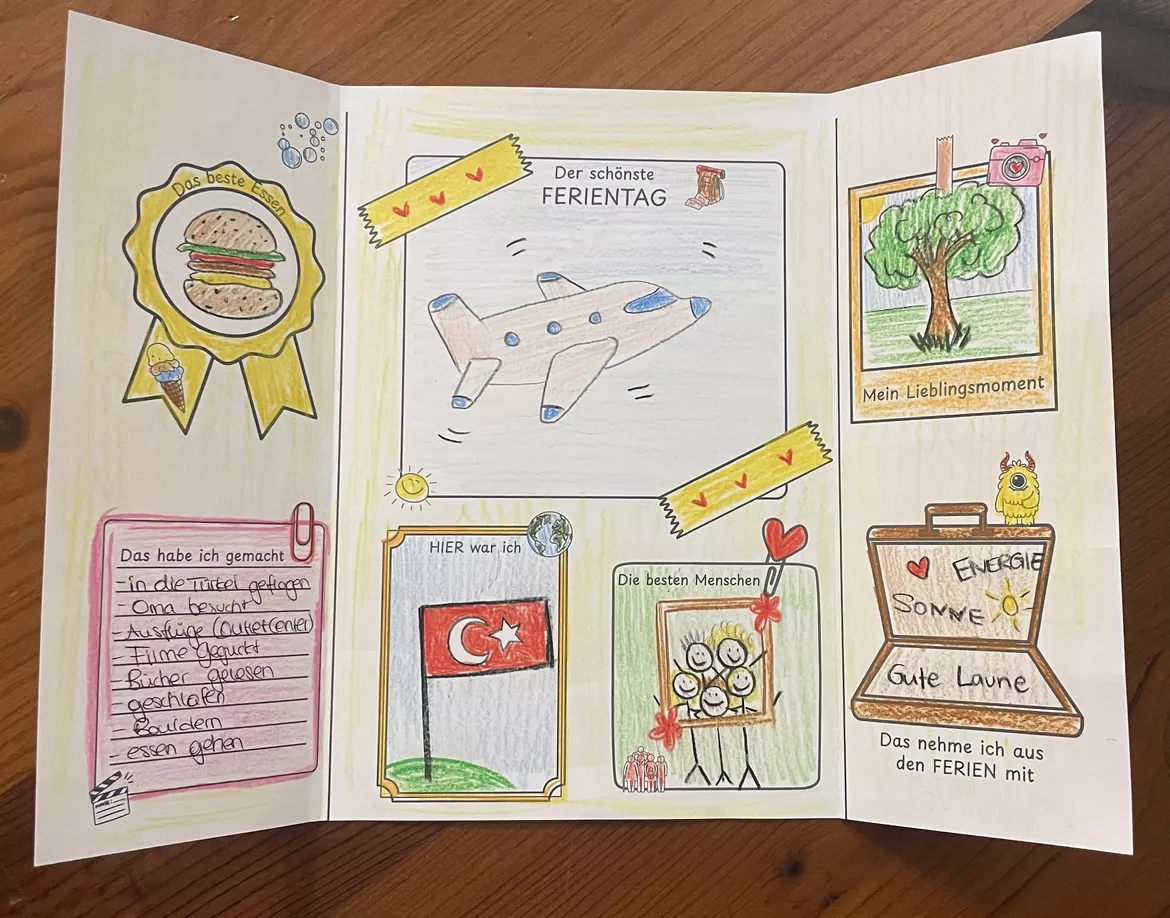 Das beste Essen
Das habe ich gemacht
- in die Türkei geflogen
- Oma besucht
- Ausflüge (Outletcenter)
- Filme geguckt
- Bücher gelesen
- geschlafen
- Bouldern
- essen gehen
Der schönste
FERIENTAG
HIER war ich
Die besten Menschen
Mein Lieblingsmoment
ENERGIE
SONNE
Gute Laune
Das nehme ich aus
den FERIEN mit